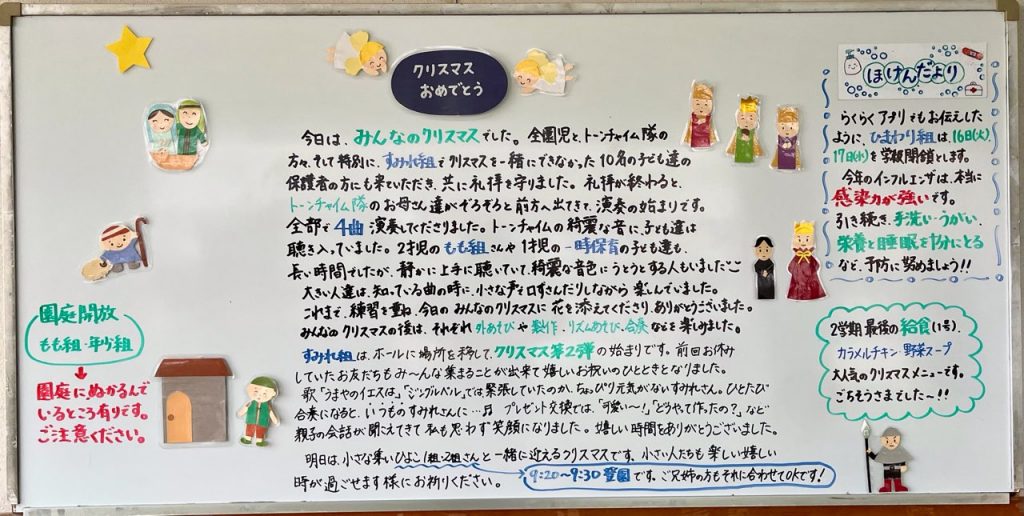 クリスマス
おめでとう
今日は、みんなのクリスマスでした。全園児とトーンチャイム隊の
方々、そして特別に、すみれ組でクリスマスを一緒にできなかった10名の子ども達の
保護者の方にも来ていただき、共に礼拝を守りました。礼拝が終わると、
トーンチャイム隊のお母さん達がぞろぞろと前方へ出てきて、演奏の始まりです。
全部で4曲演奏してくださりました。トーンチャイムの綺麗な音に、子ども達は
聴き入っていました。2才児のもも組さんや1才児の一時保育の子ども達も、
長い時間でしたが、静かに上手に聴いていて、綺麗な音色にうとうとする人もいました
大きい人達は、知っている曲の時に、小さな声で口ずさんだりしながら楽しんでいました。
これまで、練習を重ね、今日のみんなのクリスマスに花を添えてくださり、ありがとうございました。
みんなのクリスマスの後は、それぞれ外あそびや製作、リズムあそび、合奏などを楽しみました。
すみれ組は、ホールに場所を移して、クリスマス第2弾の始まりです。前回お休み
していたお友だちもみ〜んな集まることが出来て嬉しいお祝いのひとときとなりました。
歌「うまやのイエスは」「ジングルベル」では緊張していたのか、ちょっぴり元気がないすみれさん。ひとたび
合奏になると、いつものすみれさんに…♫ プレゼント交換では、「可愛い〜!」「どうやって作ったの?」など
親子の会話が聞こえてきて私も思わず笑顔になりました。嬉しい時間をありがとうございました。
明日は、小さな集いひよこ1組・2組さんと一緒に迎えるクリスマスです。小さい人たちも楽しい嬉しい
時が過ごせます様にお祈りください。
9:20〜9:30登園です。ご兄姉の方もそれに合わせてOKです!
園庭開放
もも組・年少組
園庭にぬかるんで
いるところ有ります。
ご注意ください。
ほけんだより
らくらくアプリでもお伝えした
ように、ひまわり組は、16日(火)、
17日(水)を学級閉鎖とします。
今年のインフルエンザは、本当に
感染力が強いです。
引き続き、手洗い・うがい、
栄養と睡眠を十分にとる
など、予防に努めましょう!!
2学期最後の給食(1号)、
カラメルチキン・野菜スープ
大人気のクリスマスメニューです。
ごちそうさまでした〜!!